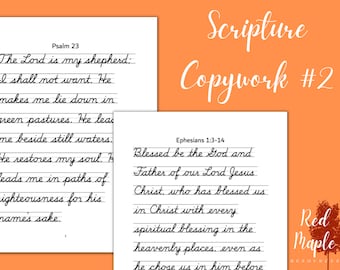 Psalm 23
The Lord is my shepherd:
I shall not want. He
makes me lie down in
green pastures. He leads
me beside still waters.
He restores my soul. H
leads me in paths of
righteousness for his
name's sake.
Ephesians 1:3-14
Blessed be the God and
Father of our Lord Jesus
Christ, who has blessed us
in Christ with every
spiritual blessing in the
heavenly places, even as
he chose us in him before
Scripture
Copywork #2
Red
Maple